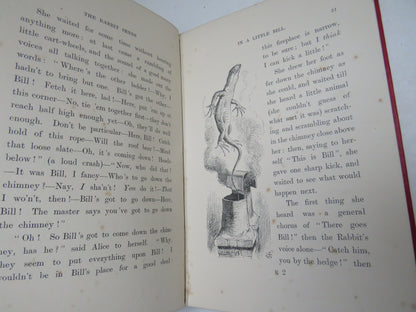 THE RABBIT SENDS
She waited for some time without hearing
anything more: at last came a rumbling of
little cart-wheels, and the sound of a good many
voices all talking together: she made out the
words: "Where's the other ladder?—Why, I
hadn't to bring but one. Bill's got the other—
Bill! Fetch it here, lad!—Here, put 'em up at
this corner—No, tie 'em together first—they don't
reach half high enough yet—Oh, they'll do well
enough. Don't be particular—Here, Bill! Catch
hold of this rope—Will the roof bear?—Mind
that loose slate—Oh, it's coming down! Heads
below!" (a loud crash)—"Now, who did that?
—It was Bill, I fancy—Who's to go down the
chimney?—Nay, I sha'n't! You do it!—That
I won't, then!—Bill's got to go down—Here,
Bill! The master says you've got to go down
the chimney!"
"Oh! So Bill's got to come down the chim
ney, has he?" said Alice to herself. "Why,
they seem to put everything upon Bill! I
wouldn't be in Bill's place for a good deal
IN A LITTLE BILL.
51
this fireplace is narrow,
to be sure; but I think
I can kick a little!"
She drew her foot as
far down the chimney as
she could, and waited till
she heard a little animal
(she couldn't guess of
what sort it was) scratch-
ing and scrambling about
in the chimney close above
her: then, saying to her-
self "This is Bill", she
gave one sharp kick, and
waited to see what would
happen next.
The first thing she
heard was a general
chorus of "There goes
Bill!" then the Rabbit's
voice alone—"Catch him,
you by the hedge!" then
E 2